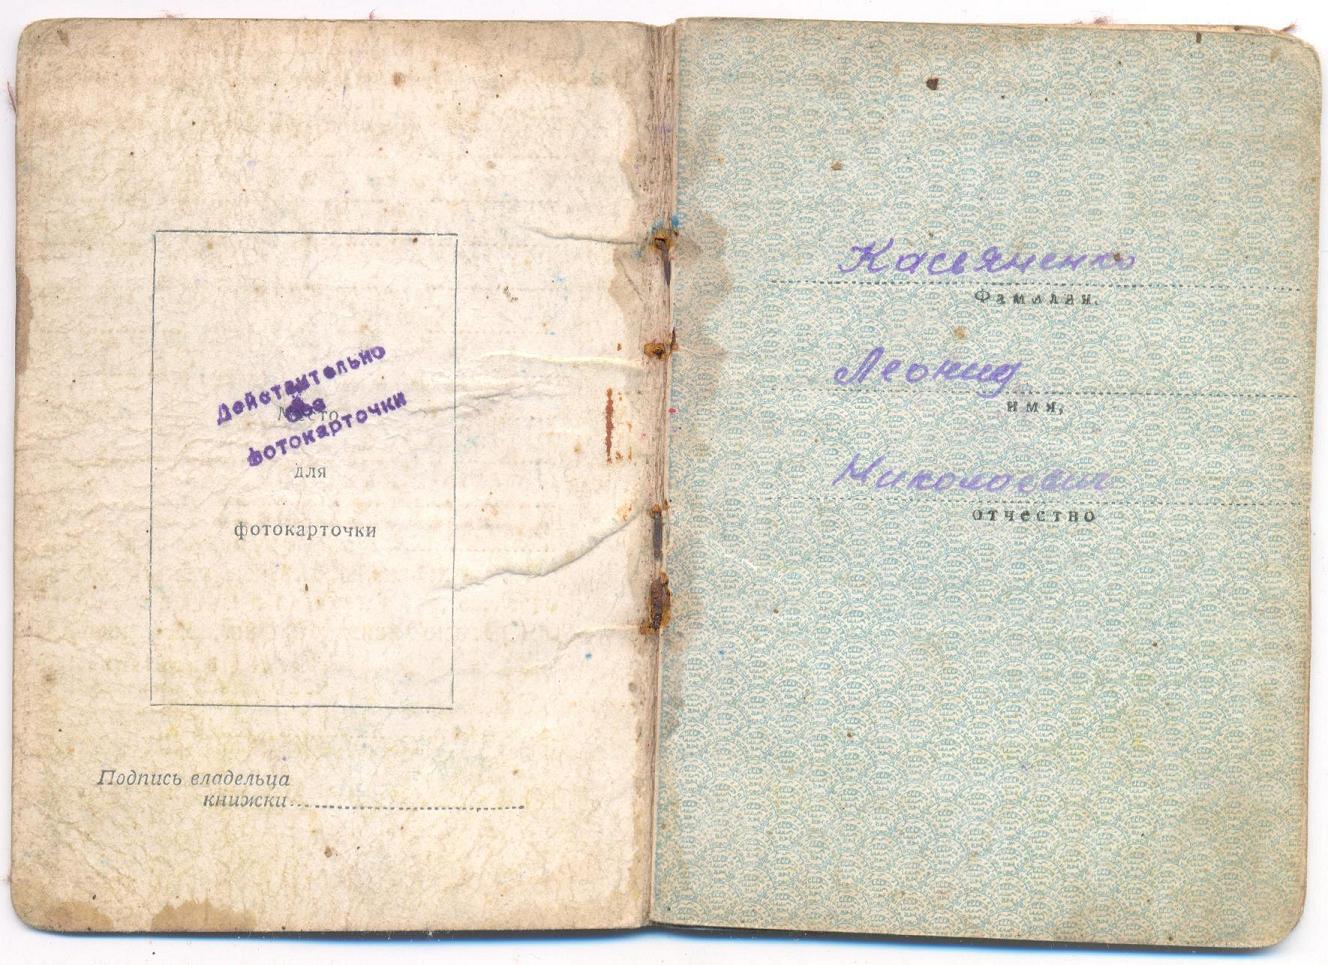 Действительно
без
фотокарточки
Место
для
фотокарточки
Подпись владельца
книжки
Касьяненко
Фамилия,
Леонид
имя,
Николаевич
отчество